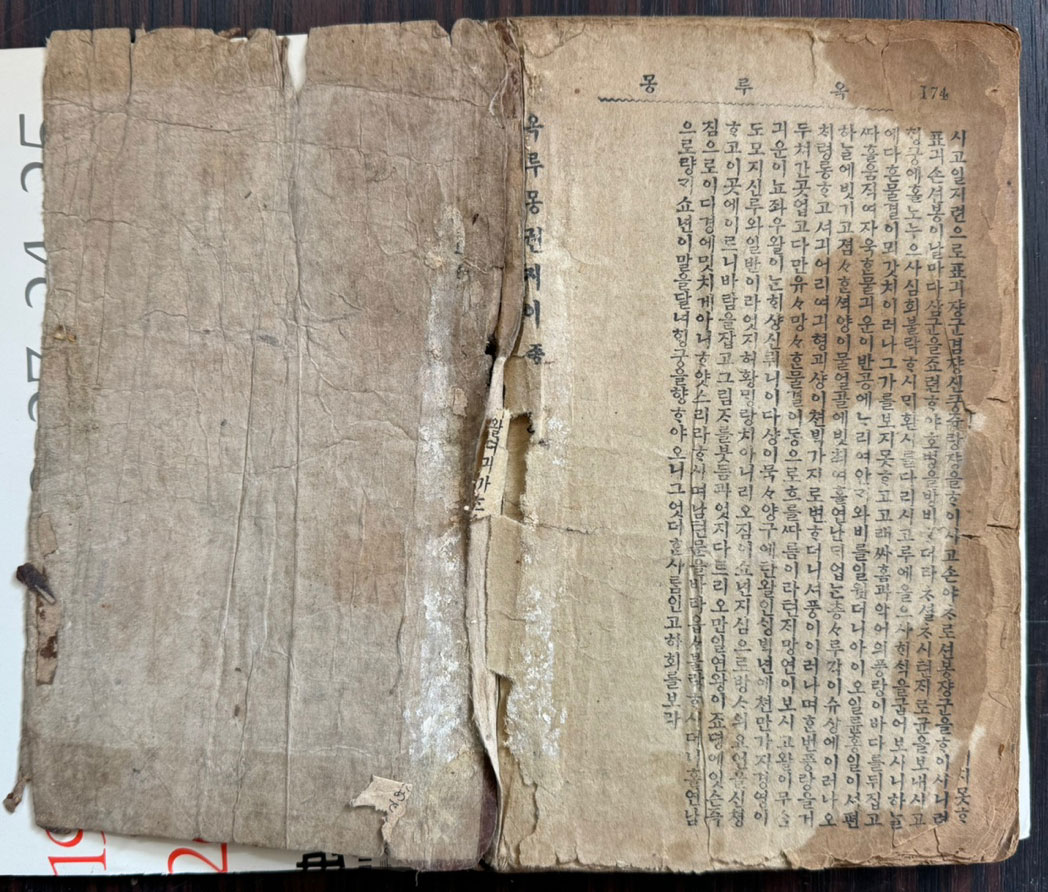 몽루옥 174
시고일지련으로표긔쟝군겸쟝신궁즁랑쟝을ᄒᆞ이시고손야ᄎᆞ로션봉쟝군을ᄒᆞ이시니려
표긔손션봉이날마다삼군을죠련ᄒᆞ야호령을방비ᄒᆞ더라ᄎᆞ셜ᄎᆞ시련지로균을보내시고
ᄒᆡᆼ궁에홀노누으사심회불락ᄒᆞ시민환시를다리시고루에올으샤ᄒᆡ석을굽어보시니하ᄂᆞᆯ
에다흔물결이뫼갓치이러나그가를보지못ᄒᆞ고고래싸홈과악어의풍랑이바다를뒤집고
ᄯᅡ흘움직여자욱ᄒᆞᆫ물긔운이반공에ᄂᆞ리여안ᄀᆡ와비를일웟더니아이오일륜홍일이셔편
하ᄂᆞᆯ에빗기고졈々ᄒᆞᆫ셕양이물얼골에빗최여홀연난ᄃᆡ업ᄂᆞᆫ층々루각이슈상에이러나오
ᄎᆡ령롱ᄒᆞ고셔긔어리여긔형괴샹이쳔ᄇᆡᆨ가지로변ᄒᆞ더니셔풍이이러나며ᄒᆞᆫ번풍랑을거
두쳐간곳업고다만유々망々ᄒᆞᆫ물결이동으로흐를ᄯᆞ름이라텬ᄌᆞ망연이보시고왈이무ᄉᆞᆷ
긔운이뇨좌우왈이ᄂᆞᆫᄒᆡ샹신루니이다샹이묵々양구에탄왈인ᄉᆡᆼᄇᆡᆨ년에쳔만가지경영이
도모지신루와일반이라엇지허황밍랑치아니리오짐이쇼년지심으로방ᄉᆞ의요언을신쳥
ᄒᆞ고이곳에이르니바람을잡고그림ᄌᆞ를붓듬과엇지다르리오만일연왕이죠뎡에잇슨즉
짐으로이디경에밋치게아녀ᄒᆞ얏스리라ᄒᆞ시며남텬문을바라 불락ᄒᆞ시더니홀연남
으로량ᄀᆡ쇼년이말을달녀ᄒᆡᆼ궁을향ᄒᆞ야오니그엇더ᄒᆞᆫ사ᄅᆞᆷ인고하회를보라
옥루몽권지이죵